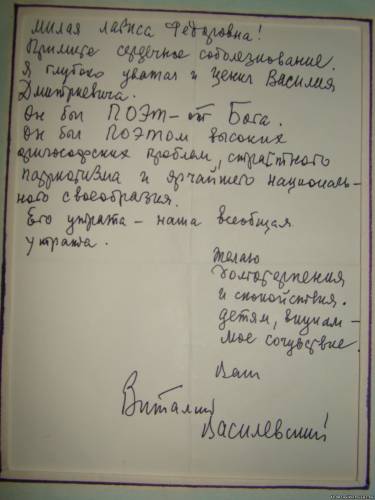 Милая Лариса Федоровна!
Примите сердечное соболезнование.
Я глубоко уважал и ценил Василия
Дмитриевича.
Он был ПОЭТ - от Бога.
Он был ПОЭТОМ высоких
философских проблем, страстного
патриотизма и ярчайшего националь-
ного своеобразия.
Его утрата - наша всеобщая
утрата.
Желаю
долготерпения
и спокойствия.
Детям, внукам -
мое сочувствие.
Ваш
Виталий
Василевский